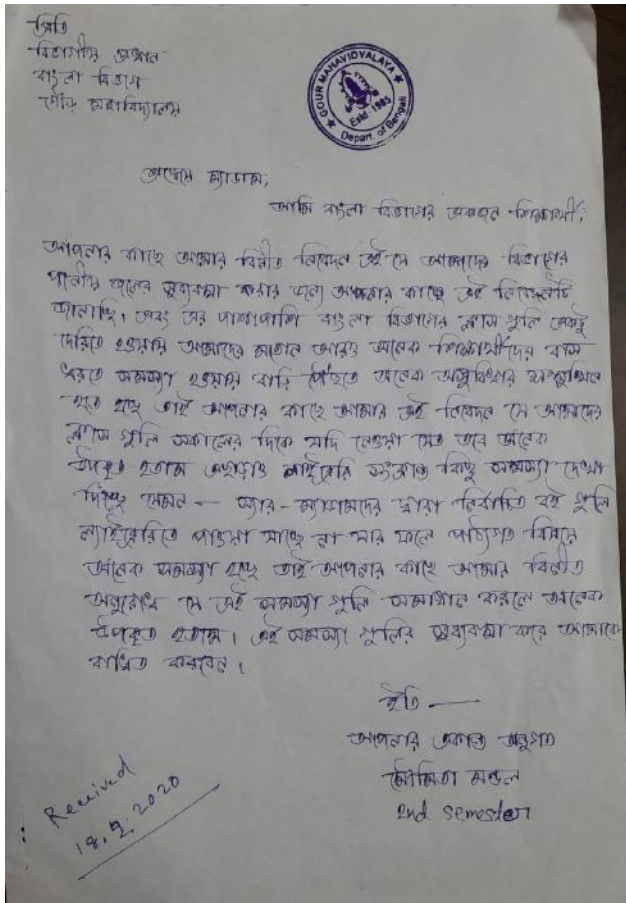 প্রতি
বিভাগীয় প্রধান
বাংলা বিভাগ
গৌড় মহাবিদ্যালয়
GOUR MAHAVIDYALAYA
Estd. 1985
Depart. of Bengali
শ্রদ্ধেয় ম্যাডাম,
আমি বাংলা বিভাগের একজন শিক্ষার্থী।
আপনার কাছে আমার বিনীত নিবেদন এই যে আমাদের বিভাগের
পানীয় জলের সুব্যবস্থা করার জন্যে আপনার কাছে এই নিবেদনটি
জানাচ্ছি। এবং তার পাশাপাশি বাংলা বিভাগের ক্লাস গুলি একটু
দেরিতে হওয়ায় আমাদের মতোন আরও অনেক শিক্ষার্থীদের বাস
ধরতে সমস্যা হওয়ায় বাড়ি পৌঁছতে অনেক অসুবিধার সম্মুখীন
হতে হচ্ছে তাই আপনার কাছে আমার এই নিবেদন যে আমাদের
ক্লাস গুলি সকালের দিকে যদি নেওয়া যেত তবে অনেক
উপকৃত হতাম এছাড়াও লাইব্রেরি সংক্রান্ত কিছু সমস্যা দেখা
দিচ্ছে যেমন — স্যার - ম্যাডামদের দ্বারা নির্বাচিত বই গুলি
ল্যাইব্রেরিতে পাওয়া যাচ্ছে না যার ফলে পাঠ্যগত বিষয়ে
অনেক সমস্যা হচ্ছে তাই আপনার কাছে আমার বিনীত
অনুরোধ যে এই সমস্যা গুলি সমাধান করলে অনেক
উপকৃত হতাম। এই সমস্যা গুলির সুব্যবস্থা করে আমাকে
বাধিত করবেন।
ইতি —
আপনার একান্ত অনুগত
মৌমিতা মন্ডল
2nd semester
Received
18.2.2020